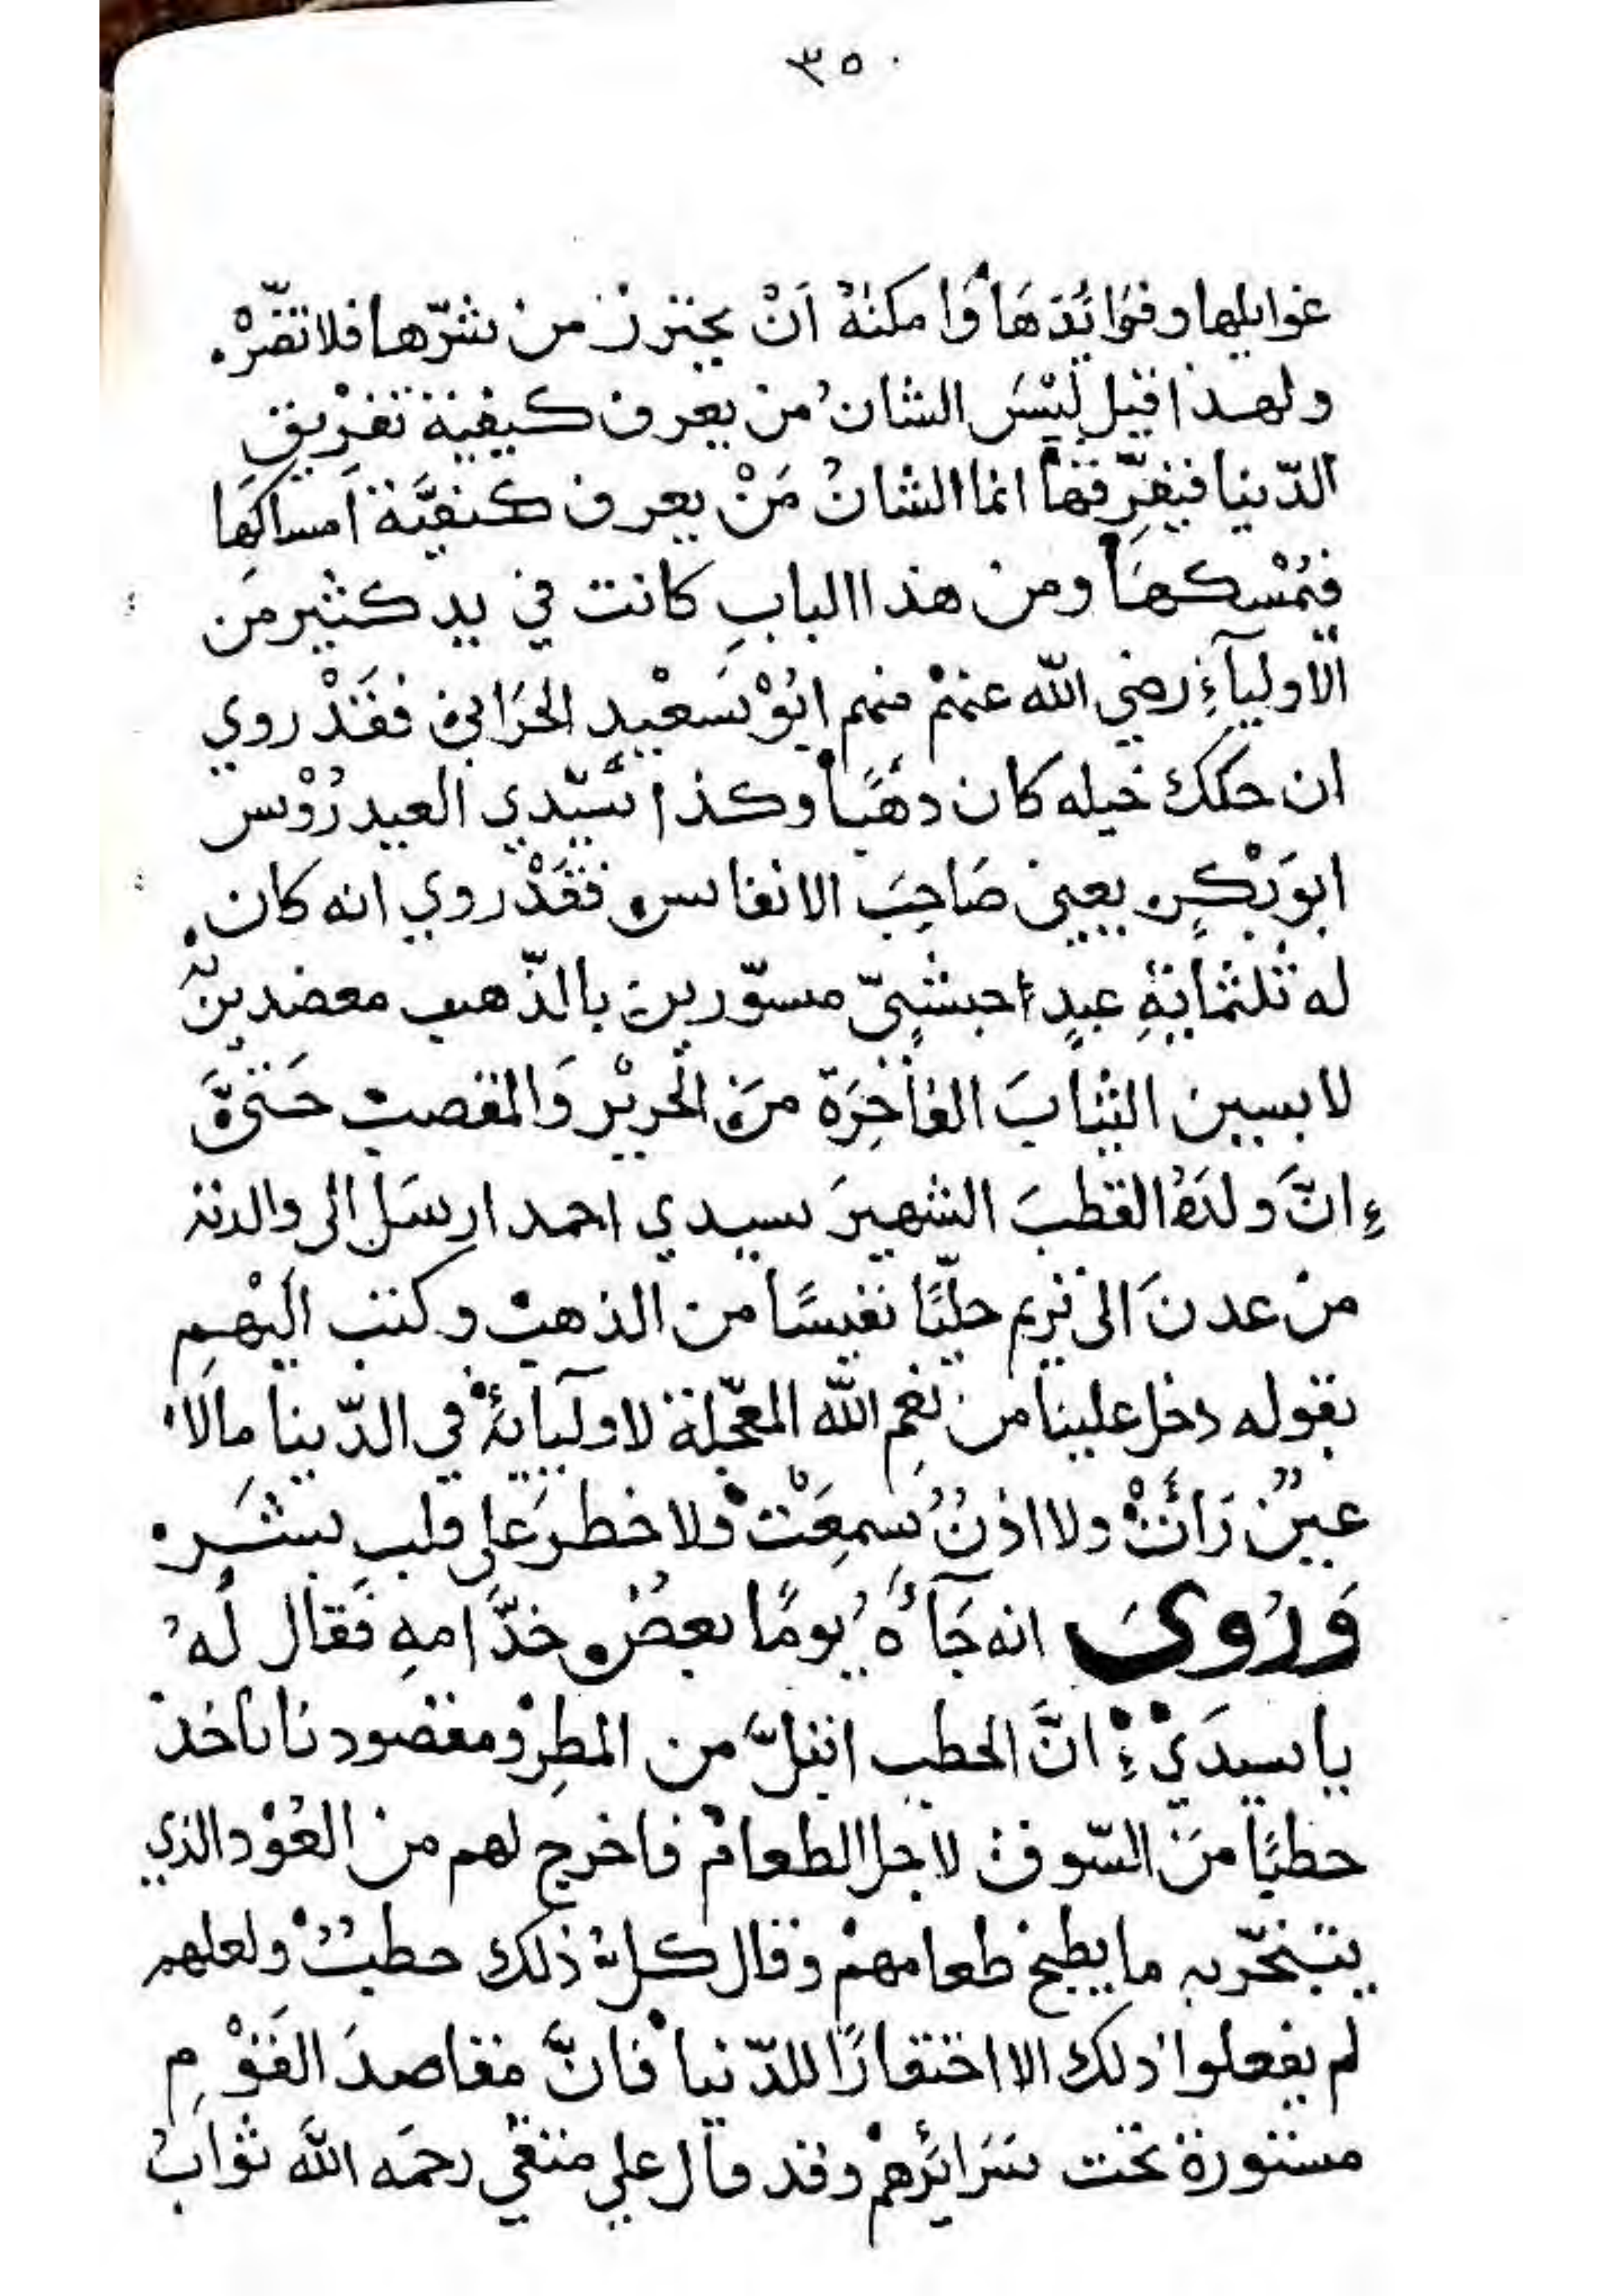 ٣٥٠
غوايلها وفوائدها وامكنه ان يحترز من شرّها فلا تضرّه
ولهذا قيل ليس الشان من يعرف كيفية تفريق
الدّنيا فيفرّقها انما الشان من يعرف كيفيّة امساكها
فيمسكها ومن هذا الباب كانت في يد كثير من
الاوليآء رضي الله عنهم منهم ابو سعيد فقد روي
ان خيله كان ذهبًا وكذا سيّدي العيدروس
ابو بكر يعني صاحب الانفاس فقد روي انه كان
له ثلثماية عبد حبشيّ مسوّرين بالذّهب معضدين
لابسين الثياب الفاخرة من الحرير والمقصب حتى
ء انّ ولده القطب الشهير سيدي احمد ارسل الى والدته
من عدن الى تريم حليًّا نفيسًا من الذهب وكتب اليهم
بقوله دخل علينا من نعم الله المعجّلة لاوليآئه في الدّنيا ما لا
عين رأت ولا اذن سمعت ولا خطر على قلب بشر
وروى انه جآءه يومًا بعض خدّامه فقال له
يا سيدي انّ الحطب ابتلّ من المطر ومقصودنا ناخذ
حطبًا من السّوق لاجل الطعام فاخرج لهم من العود الذي
يتبخّر به ما يطبخ طعامهم وقال كل ذلك حطب ولعلهم
لم يفعلوا ذلك الا احتقارًا للدّنيا فانّ مقاصد القوم
مستورة تحت سرائرهم وقد قال علي متقي رحمه الله ثواب